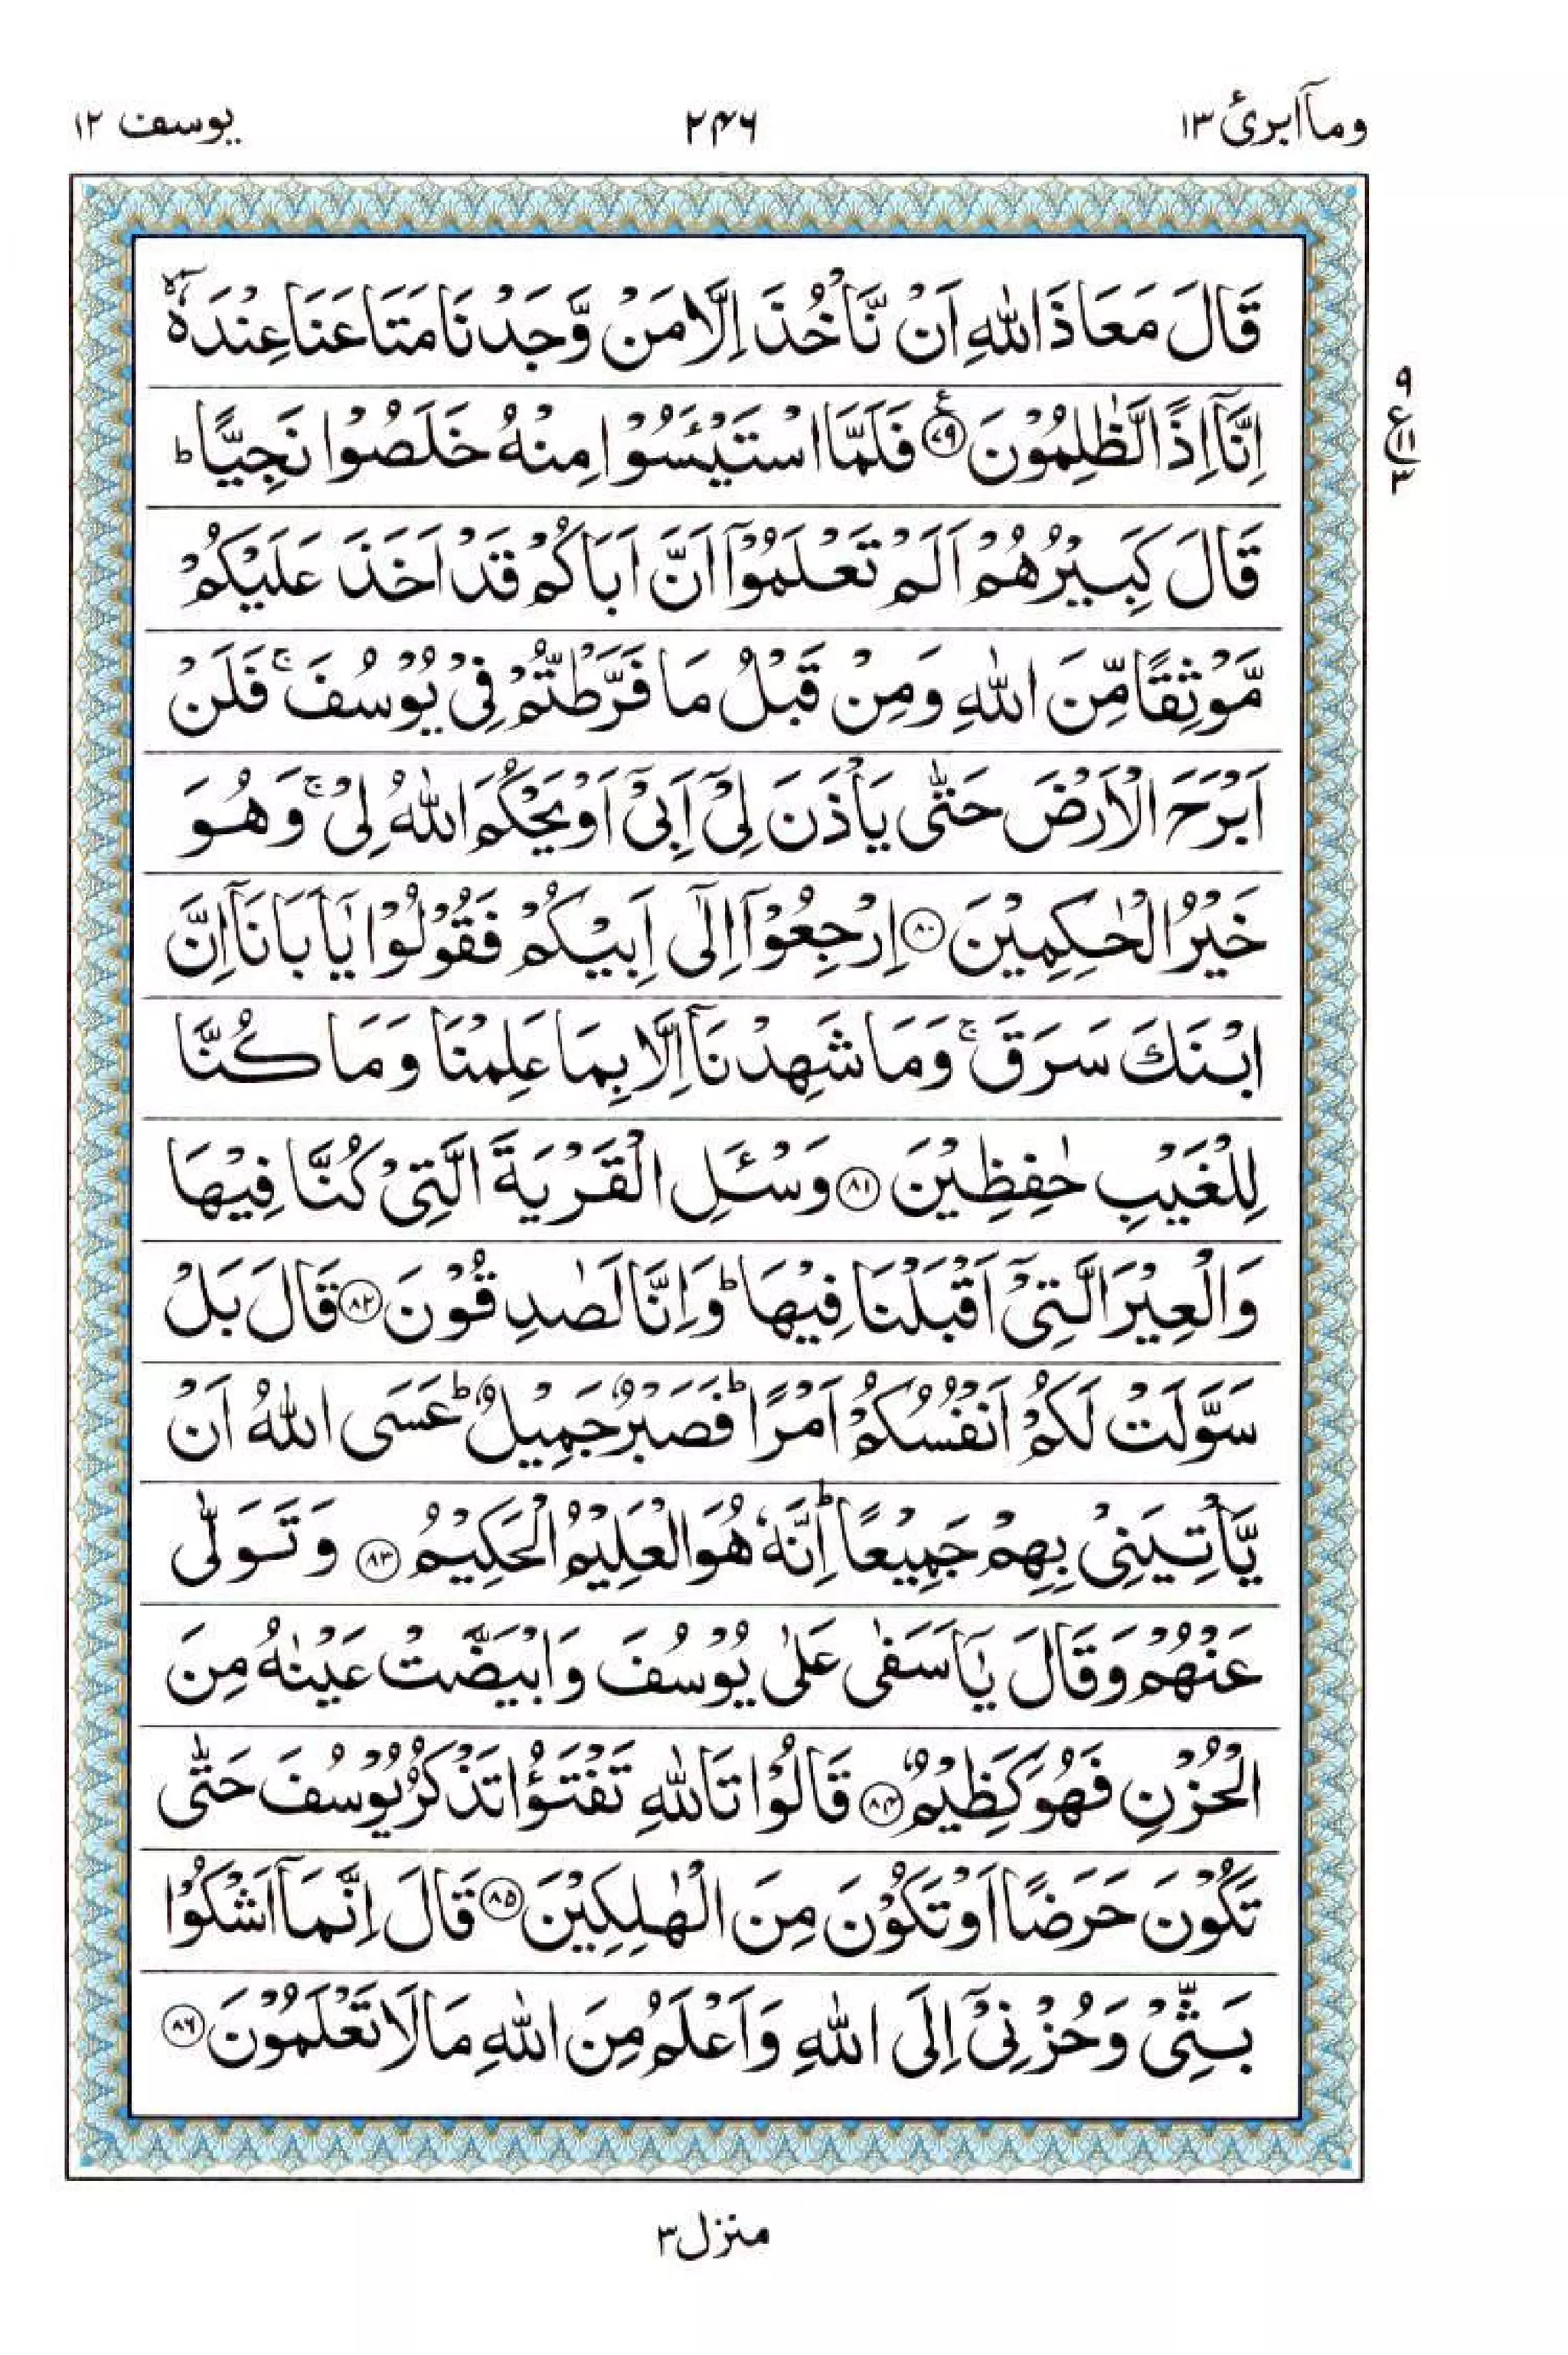 وماآابرئ ١٣
٢٤٦
يوسف ١٢
قَالَ مَعَاذَ اللّٰهِ اَنْ نَّاْخُذَ اِلَّا مَنْ وَّجَدْنَا مَتَاعَنَا عِنْدَهٗۤ ۙ
اِنَّاۤ اِذًا لَّظٰلِمُوْنَ ﴿٧٩﴾ۧ فَلَمَّا اسْتَيْـَٔسُوْا مِنْهُ خَلَصُوْا نَجِيًّا ؕ
قَالَ كَبِيْرُهُمْ اَلَمْ تَعْلَمُوْۤا اَنَّ اَبَاكُمْ قَدْ اَخَذَ عَلَيْكُمْ
مَّوْثِقًا مِّنَ اللّٰهِ وَمِنْ قَبْلُ مَا فَرَّطْتُّمْ فِيْ يُوْسُفَ ۚ فَلَنْ
اَبْرَحَ الْاَرْضَ حَتّٰى يَاْذَنَ لِيْۤ اَبِيْۤ اَوْ يَحْكُمَ اللّٰهُ لِيْ ۚ وَهُوَ
خَيْرُ الْحٰكِمِيْنَ ﴿٨٠﴾ اِرْجِعُوْۤا اِلٰۤى اَبِيْكُمْ فَقُوْلُوْا يٰۤاَبَانَاۤ اِنَّ
ابْنَكَ سَرَقَ ۚ وَمَا شَهِدْنَاۤ اِلَّا بِمَا عَلِمْنَا وَمَا كُنَّا
لِلْغَيْبِ حٰفِظِيْنَ ﴿٨١﴾ وَسْـَٔلِ الْقَرْيَةَ الَّتِيْ كُنَّا فِيْهَا
وَالْعِيْرَ الَّتِيْۤ اَقْبَلْنَا فِيْهَا ؕ وَاِنَّا لَصٰدِقُوْنَ ﴿٨٢﴾ قَالَ بَلْ
سَوَّلَتْ لَكُمْ اَنْفُسُكُمْ اَمْرًا ؕ فَصَبْرٌ جَمِيْلٌ ؕ عَسَى اللّٰهُ اَنْ
يَّاْتِيَنِيْ بِهِمْ جَمِيْعًا ؕ اِنَّهٗ هُوَ الْعَلِيْمُ الْحَكِيْمُ ﴿٨٣﴾ وَتَوَلّٰى
عَنْهُمْ وَقَالَ يٰۤاَسَفٰى عَلٰى يُوْسُفَ وَابْيَضَّتْ عَيْنٰهُ مِنَ
الْحُزْنِ فَهُوَ كَظِيْمٌ ﴿٨٤﴾ قَالُوْا تَاللّٰهِ تَفْتَؤُا تَذْكُرُ يُوْسُفَ حَتّٰى
تَكُوْنَ حَرَضًا اَوْ تَكُوْنَ مِنَ الْهٰلِكِيْنَ ﴿٨٥﴾ قَالَ اِنَّمَاۤ اَشْكُوْا
بَثِّيْ وَحُزْنِيْۤ اِلَى اللّٰهِ وَاَعْلَمُ مِنَ اللّٰهِ مَا لَا تَعْلَمُوْنَ ﴿٨٦﴾
٩
ع ١١
٣
منزل ٣